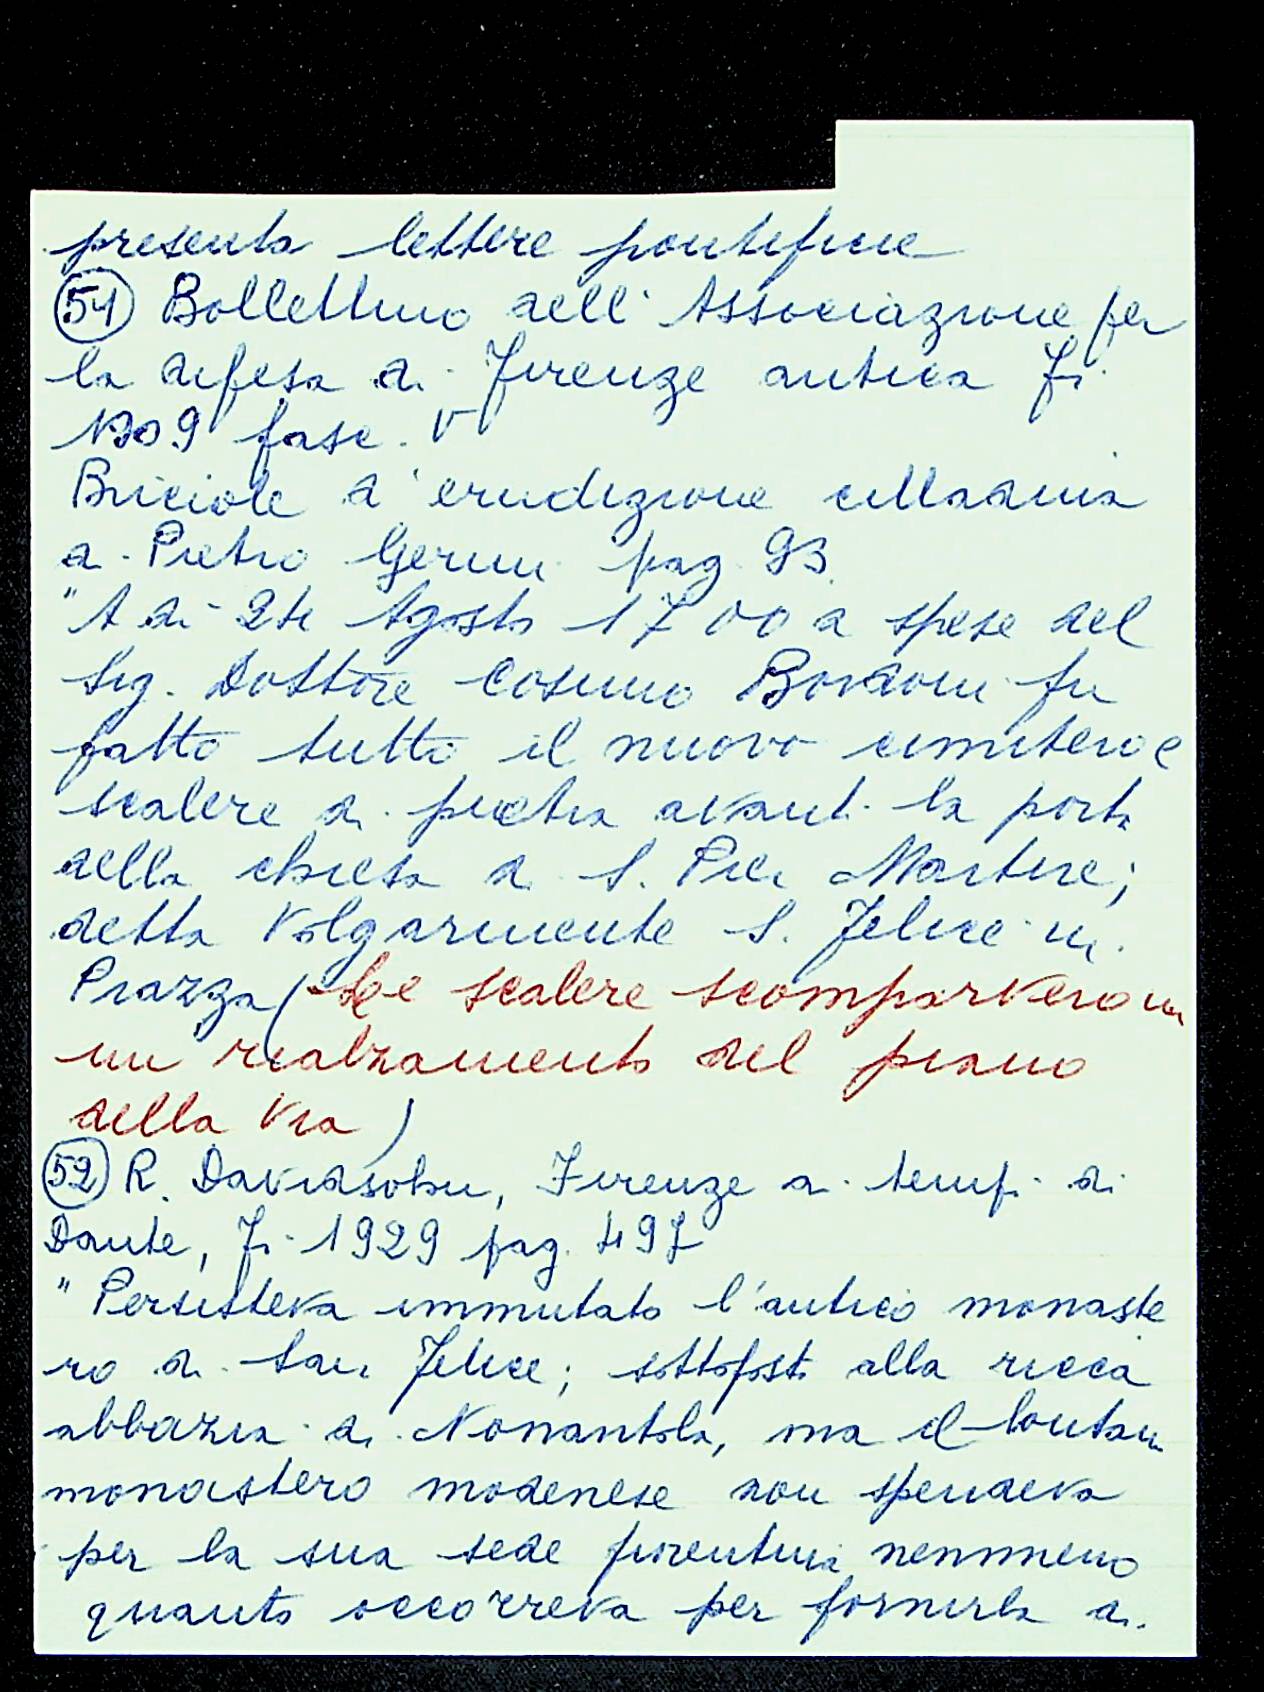 presenta lettere pontificie
(51) Bollettino dell' Associazione per
la difesa di Firenze antica Fi
1909 fasc. V
Briciole d'erudizione cittadina
di Pietro Gerini pag. 93
"A di 24 Agosto 1700 a spese del
Sig. Dottore Cosimo Bordoni fu
fatto tutto il nuovo cimitero e
scalere di pietra avanti la porta
della chiesa di S. Pier Martire;
detta volgarmente S. Felice in
Piazza (Le scalere scomparvero in
un rialzamento del piano
della via)
(52) R. Davidsohn, Firenze ai tempi di
Dante, Fi. 1929 pag. 497
"Persisteva immutato l'antico monaste
ro di San Felice; sottoposto alla ricca
abbazia di Nonantola, ma il lontano
monastero modenese non spendeva
per la sua sede fiorentina nemmeno
quanto occorreva per fornirla di